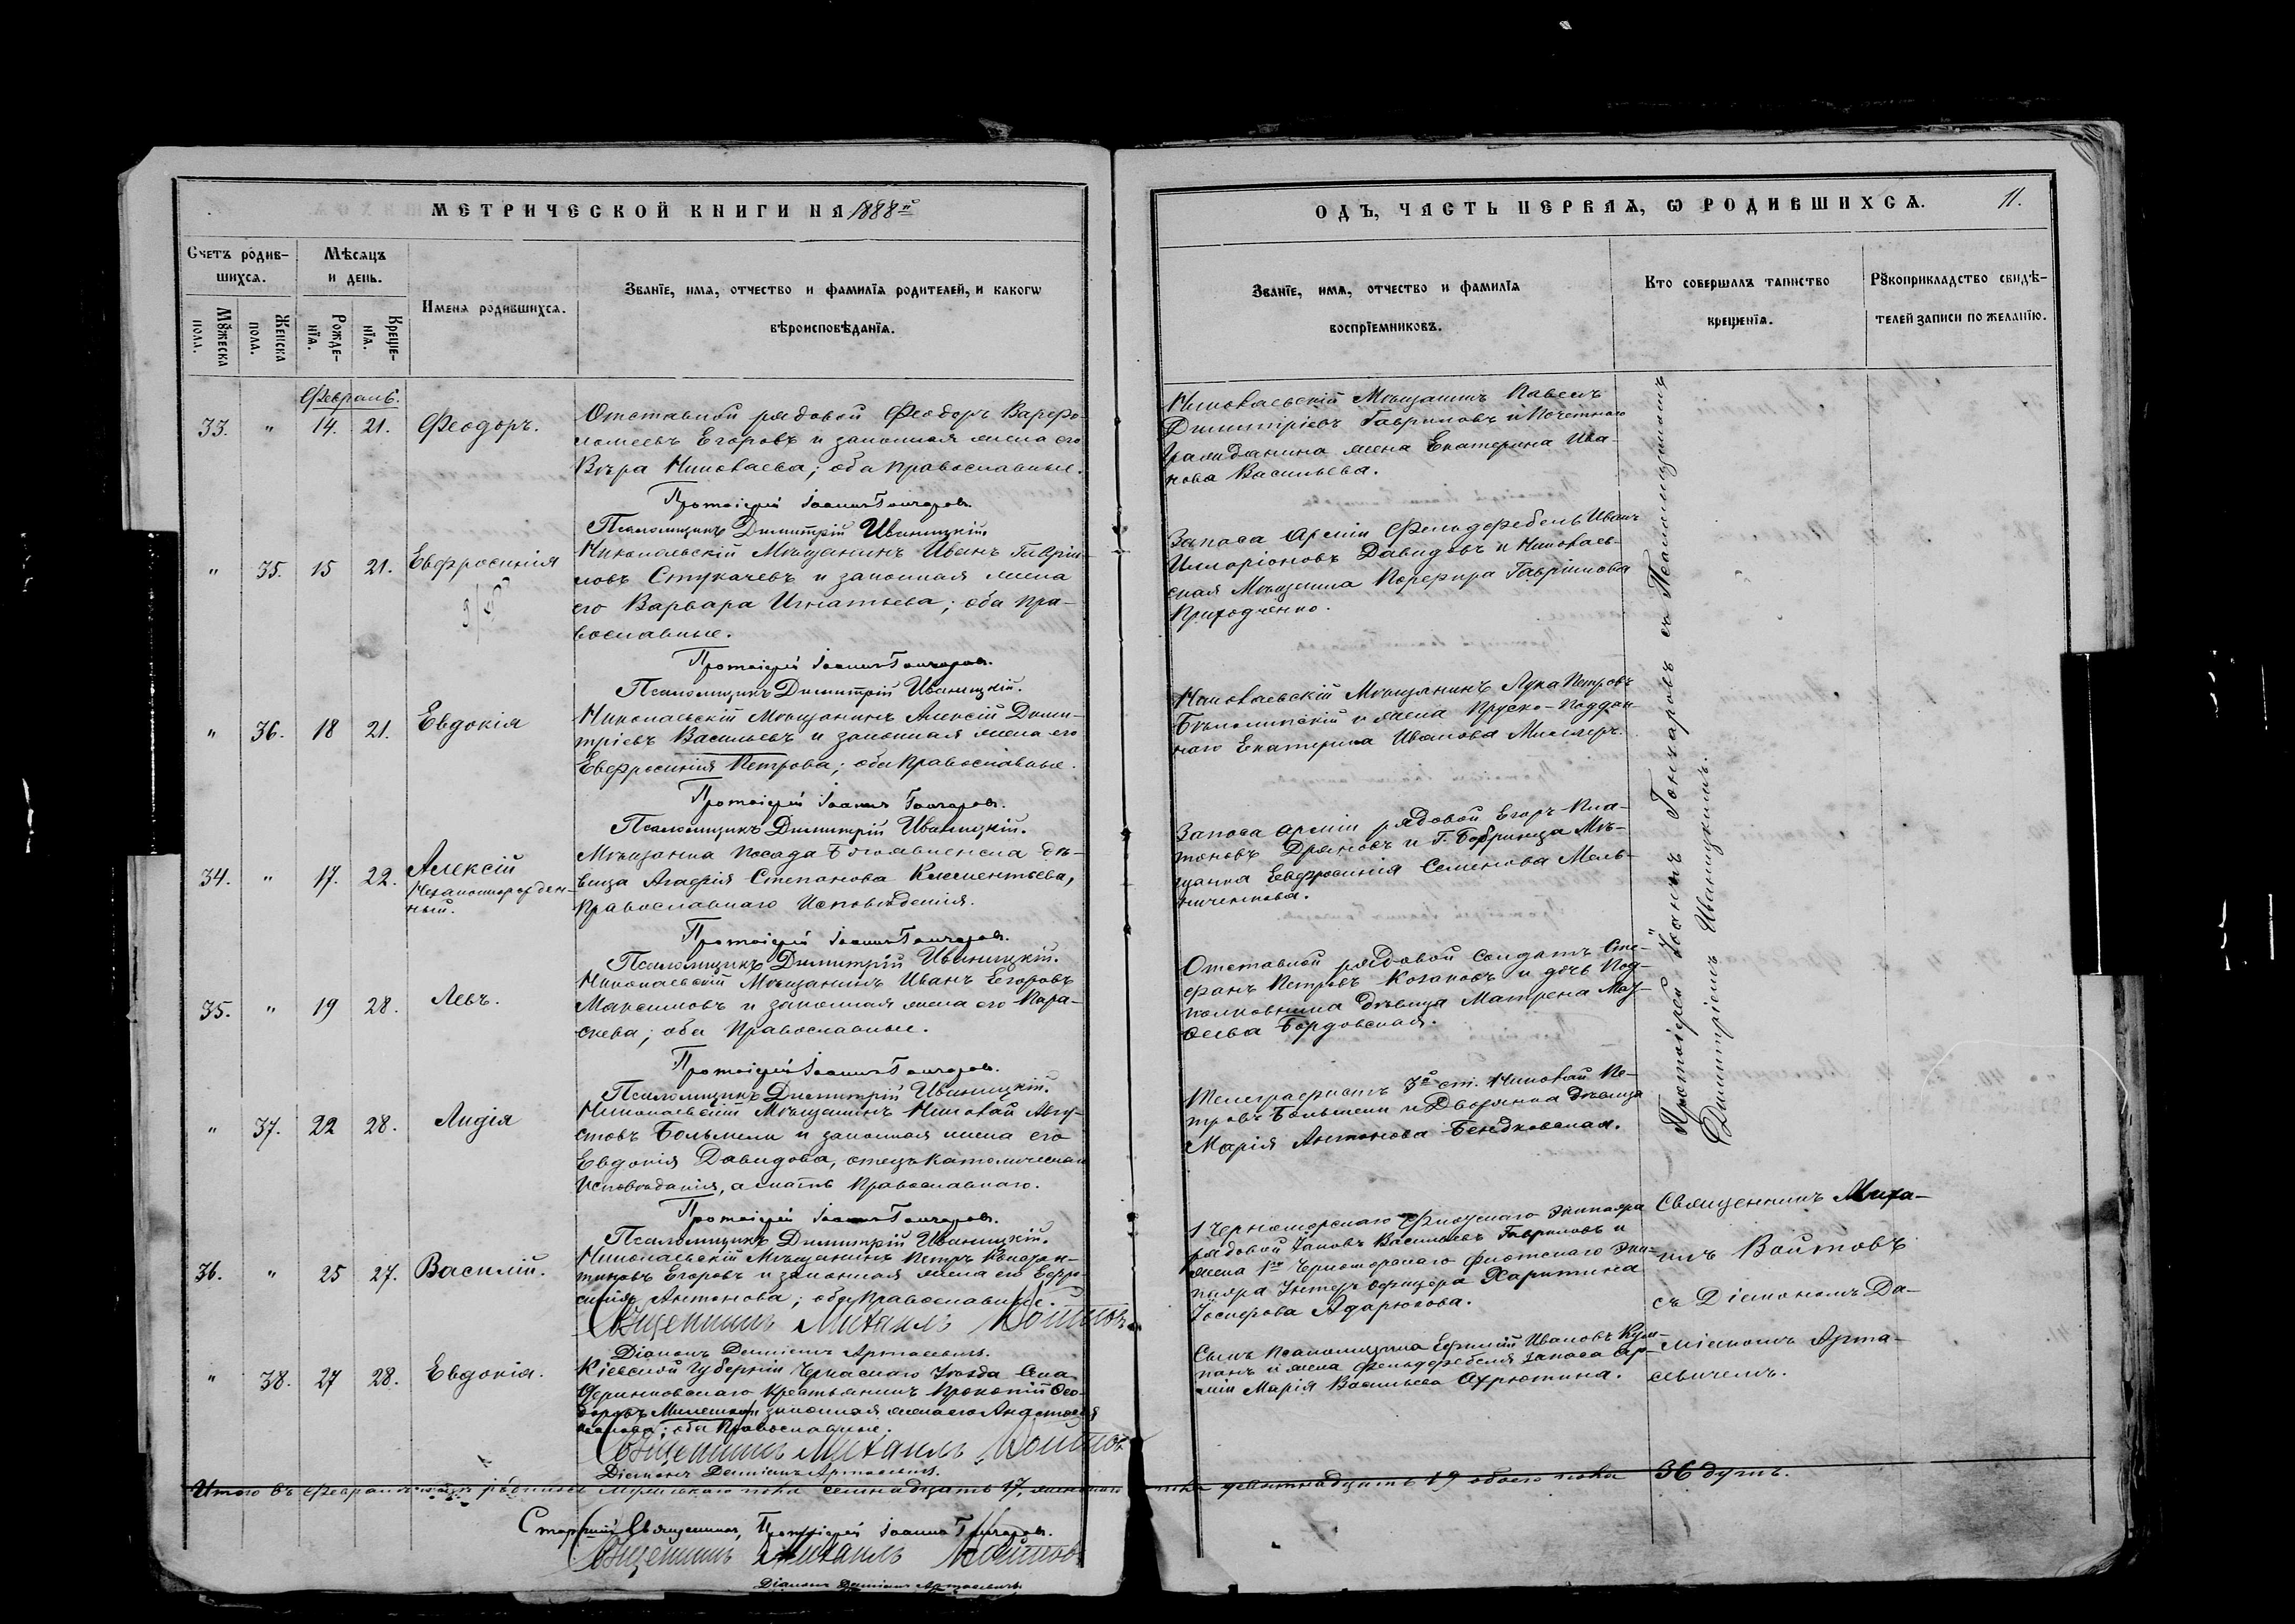 МЕТРИЧЕСКОЙ КНИГИ НА 1888й
Счетъ родив-
шихся.
Мѣсяцъ
и день.
Имена родившихся.
Званїе, имя, отчество и фамилїя родителей, и какогѡ
вѣроисповѣданїя.
Мꙋжеска
пола.
Женска
пола.
Рожде-
нїя.
Креще-
нїя.
Февраль.
33. " 14. 21. Ѳеодоръ.
Отставной рядовой Ѳеодоръ Варѳо-
ломеевъ Егоровъ и законная жена его
Вѣра Николаева; оба православные.
Протоіерей Іоаннъ Гончаровъ.
Псаломщикъ Димитрій Иваницкій.
" 35. 15 21. Евфросинія
Николаевскій Мѣщанинъ Иванъ Гаврiи-
ловъ Стукачевъ и законная жена
его Варвара Игнатьева; оба пра-
вославные.
Протоіерей Іоаннъ Гончаровъ.
Псаломщикъ Димитрій Иваницкій.
" 36. 18 21. Евдокія
Николаевскій Мѣщанинъ Алексій Дими-
тріевъ Васильевъ и законная жена его
Евфросинія Петрова; оба православные.
Протоіерей Іоаннъ Гончаровъ.
Псаломщикъ Димитрій Иваницкій.
34. " 17. 22. Алексій
Незаконнорожден-
ный.
Мѣщанка посада Богоявленска дѣ-
вица Агафія Степанова Клементьева,
православнаго исповѣданія.
Протоіерей Іоаннъ Гончаровъ.
Псаломщикъ Димитрій Иваницкій.
35. " 19 28. Левъ.
Николаевскій Мѣщанинъ Иванъ Егоровъ
Максимовъ и законная жена его Пара-
скева; оба православные.
Протоіерей Іоаннъ Гончаровъ.
Псаломщикъ Димитрій Иваницкій.
" 37. 22 28. Лидія
Николаевскій Мѣщанинъ Николай Авгу-
стовъ Больмели и законная жена его
Евдокія Давидова, отецъ католическаго
исповѣданія, а мать православнаго.
Протоіерей Іоаннъ Гончаровъ.
Псаломщикъ Димитрій Иваницкій.
36. " 25 27. Василій.
Николаевскій Мѣщанинъ Петръ Констан-
тиновъ Егоровъ и законная жена его Ефро-
синія Антонова; оба православные.
Священникъ Михаилъ Войтовъ
Діаконъ Даміанъ Артасевичъ.
" 38. 27 28. Евдокія.
Кіевской губерніи Черкаскаго уѣзда села
крестьянинъ Прокопій Ѳео-
доровъ и законная жена его Анастасія
оба православные.
Священникъ Михаилъ Войтовъ
Діаконъ Даміанъ Артасевичъ.
Итого въ Февралѣ родилось мужескаго пола семнадцать 17, женскаго пола девятнадцать 19 обоего пола 36 душъ.
Старшій Священникъ, Протоіерей Іоаннъ Гончаровъ.
Священникъ Михаилъ Войтовъ
Діаконъ Даміанъ Артасевичъ.
ОДЪ, ЧАСТЬ ПЕРВАЯ, Ѡ РОДИВШИХСЯ. 11.
Званїе, имя, отчество и фамилїя
воспрїемниковъ.
Кто совершалъ таинство
крещенїя.
Рꙋкоприкладство свидѣ-
телей записи по желанїю.
Николаевскій Мѣщанинъ Павелъ
Димитріевъ Гавриловъ и Почетнаго
Гражданина жена Екатерина Ива-
нова Васильева.
Запаса Арміи Фельдфебель Иванъ
Илларіоновъ Давидовъ и Николаев-
ская Мѣщанка Порфира Гавріилова
Приходченко.
Николаевскій Мѣщанинъ Лука Петровъ
и жена Прусско-поддан-
наго Екатерина Иванова Миллеръ.
Запаса Арміи рядовой Егоръ Пла-
тоновъ Дряновъ и г. Бобринца Мѣ-
щанка Евфросинія Семенова Мель-
ниченкова.
Отставной рядовой солдатъ Сте-
фанъ Петровъ Козаковъ и дочь Под-
полковника дѣвица Матрена Мо-
сеева Бордовская.
Телеграфистъ 3й ст. Николай Пе-
тровъ Больмели и Дворянка дѣвица
Марія Антонова Бендковская.
1 Черноморскаго Флотскаго экипажа
рядовой Іаковъ Васильевъ Гавриловъ и
жена 1го Черноморскаго флотскаго эки-
пажа Унтеръ Офицера Харитина
Іосифова Адарюкова.
Сынъ Псаломщика Ефимій Ивановъ
и жена Фельдфебеля запаса Ар-
міи Марія Васильева Ахрютина.
Протоіерей Іоаннъ Гончаровъ съ Псаломщикомъ
Димитріемъ Иваницкимъ.
Священникъ Миха-
илъ Войтовъ
съ Діакономъ Да-
міаномъ Арта-
севичемъ.